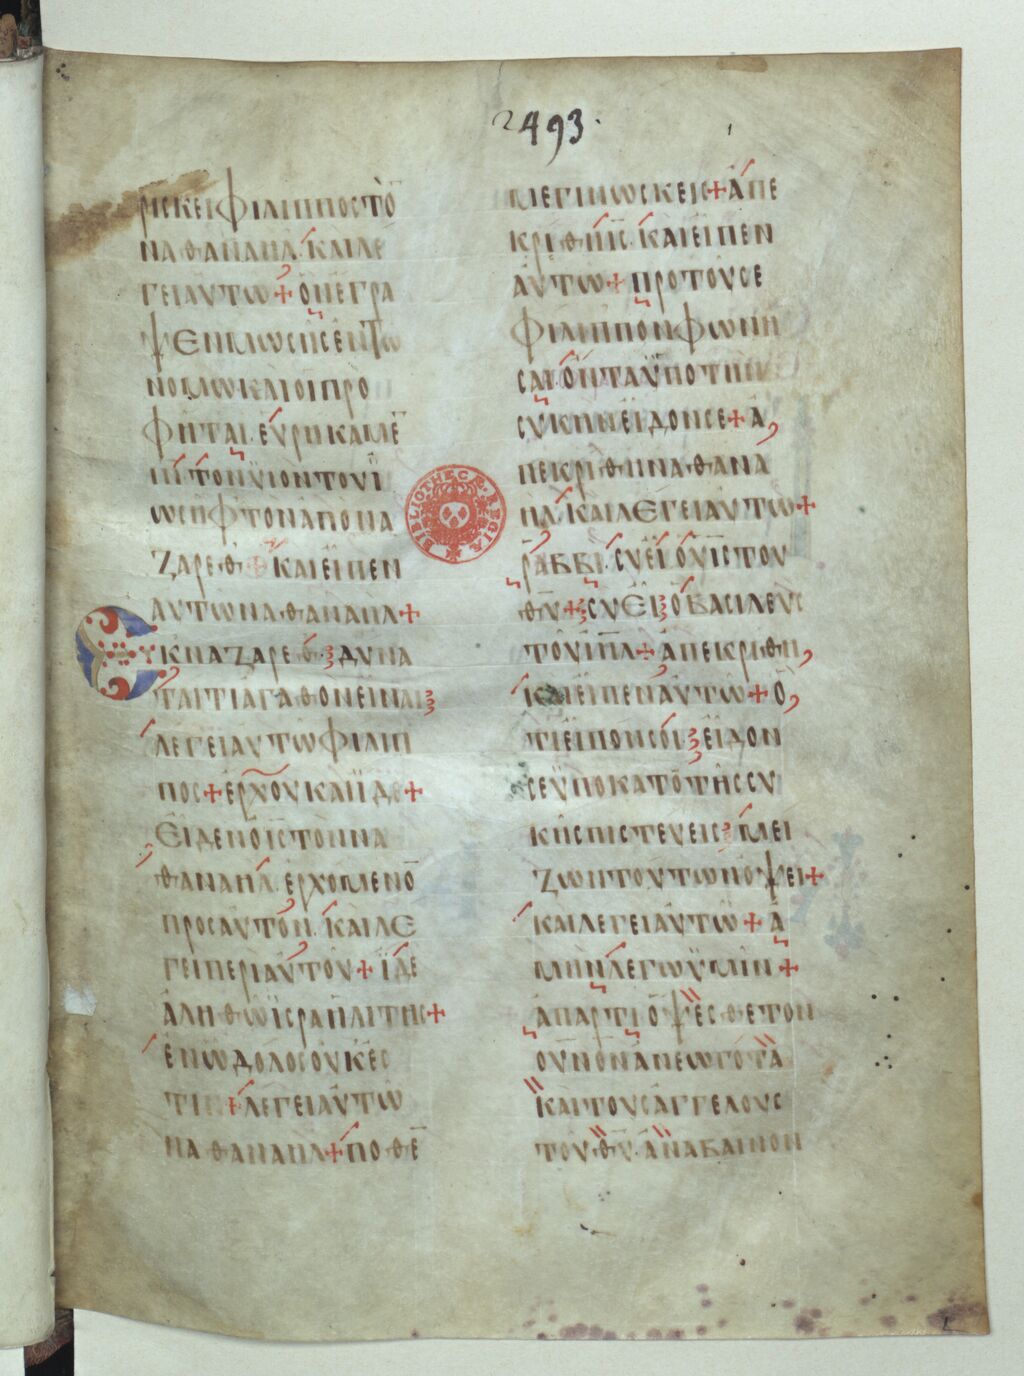 2493.
ρισκειφιλιπποστὸ̅
ναθαναηλ. καιλέ
γειαυτω+ ὃνέγρα
ψΕΝμωσησεντω
νομωκαιοιπρο
φηται. ευρηκαμε̅
ιν̅ τονϋιοντουϊ
ωσηφτοναπονα
ζαρεθ + καιεἶπεν
αυτωναθαναηλ+
Εκναζαρεθ δυνα
ταιτιαγαθονεῖναι
λεγειαυτωφιλιπ
πος+ερχουκαιϊδε+
Ειδενοι̅ς̅τοννα
θαναηλ. ερχομενο̅
προσαυτον. καιλε
γειπεριαυτου+ ϊδε
ἀληθωϊσραηλιτης+
ενωδολοσουκες
τιν+λεγειαυτω
ναθαναηλ+ποθε̅
μεγινωσκεις+ἀπε
κριθηι̅ς̅. καιεἶπεν
αυτω+προτουσε
φιλιππονφωνη
σαι. ὄνταϋποτην
συκηνεἶδονσε+ἀ
πεκριθηναθανα
ηλ. καιλΕγειαυτω+
ραββι. συεἶ. ουι̅ς̅του
θ̅υ̅+συΕἶοβασιλευς
τουι̅η̅λ̅+ἀπεκριθηι̅ς̅
καιεἶπεναυτω+ὅ
τιεἶπονσοι εἶδον
σεϋποκατὸτησσυ
κησπιστευεις μει
ζωντουτωνοψει+
καιλεγειαυτω+ἀ
μηνλεγωϋμιν+
ἀπαρτιοψεσθετον
ουνονανεωγοτα
καιτουσαγγελους
τουθ̅υ̅. ἀναβαινον
BIBLIOTHECÆ REGIÆ